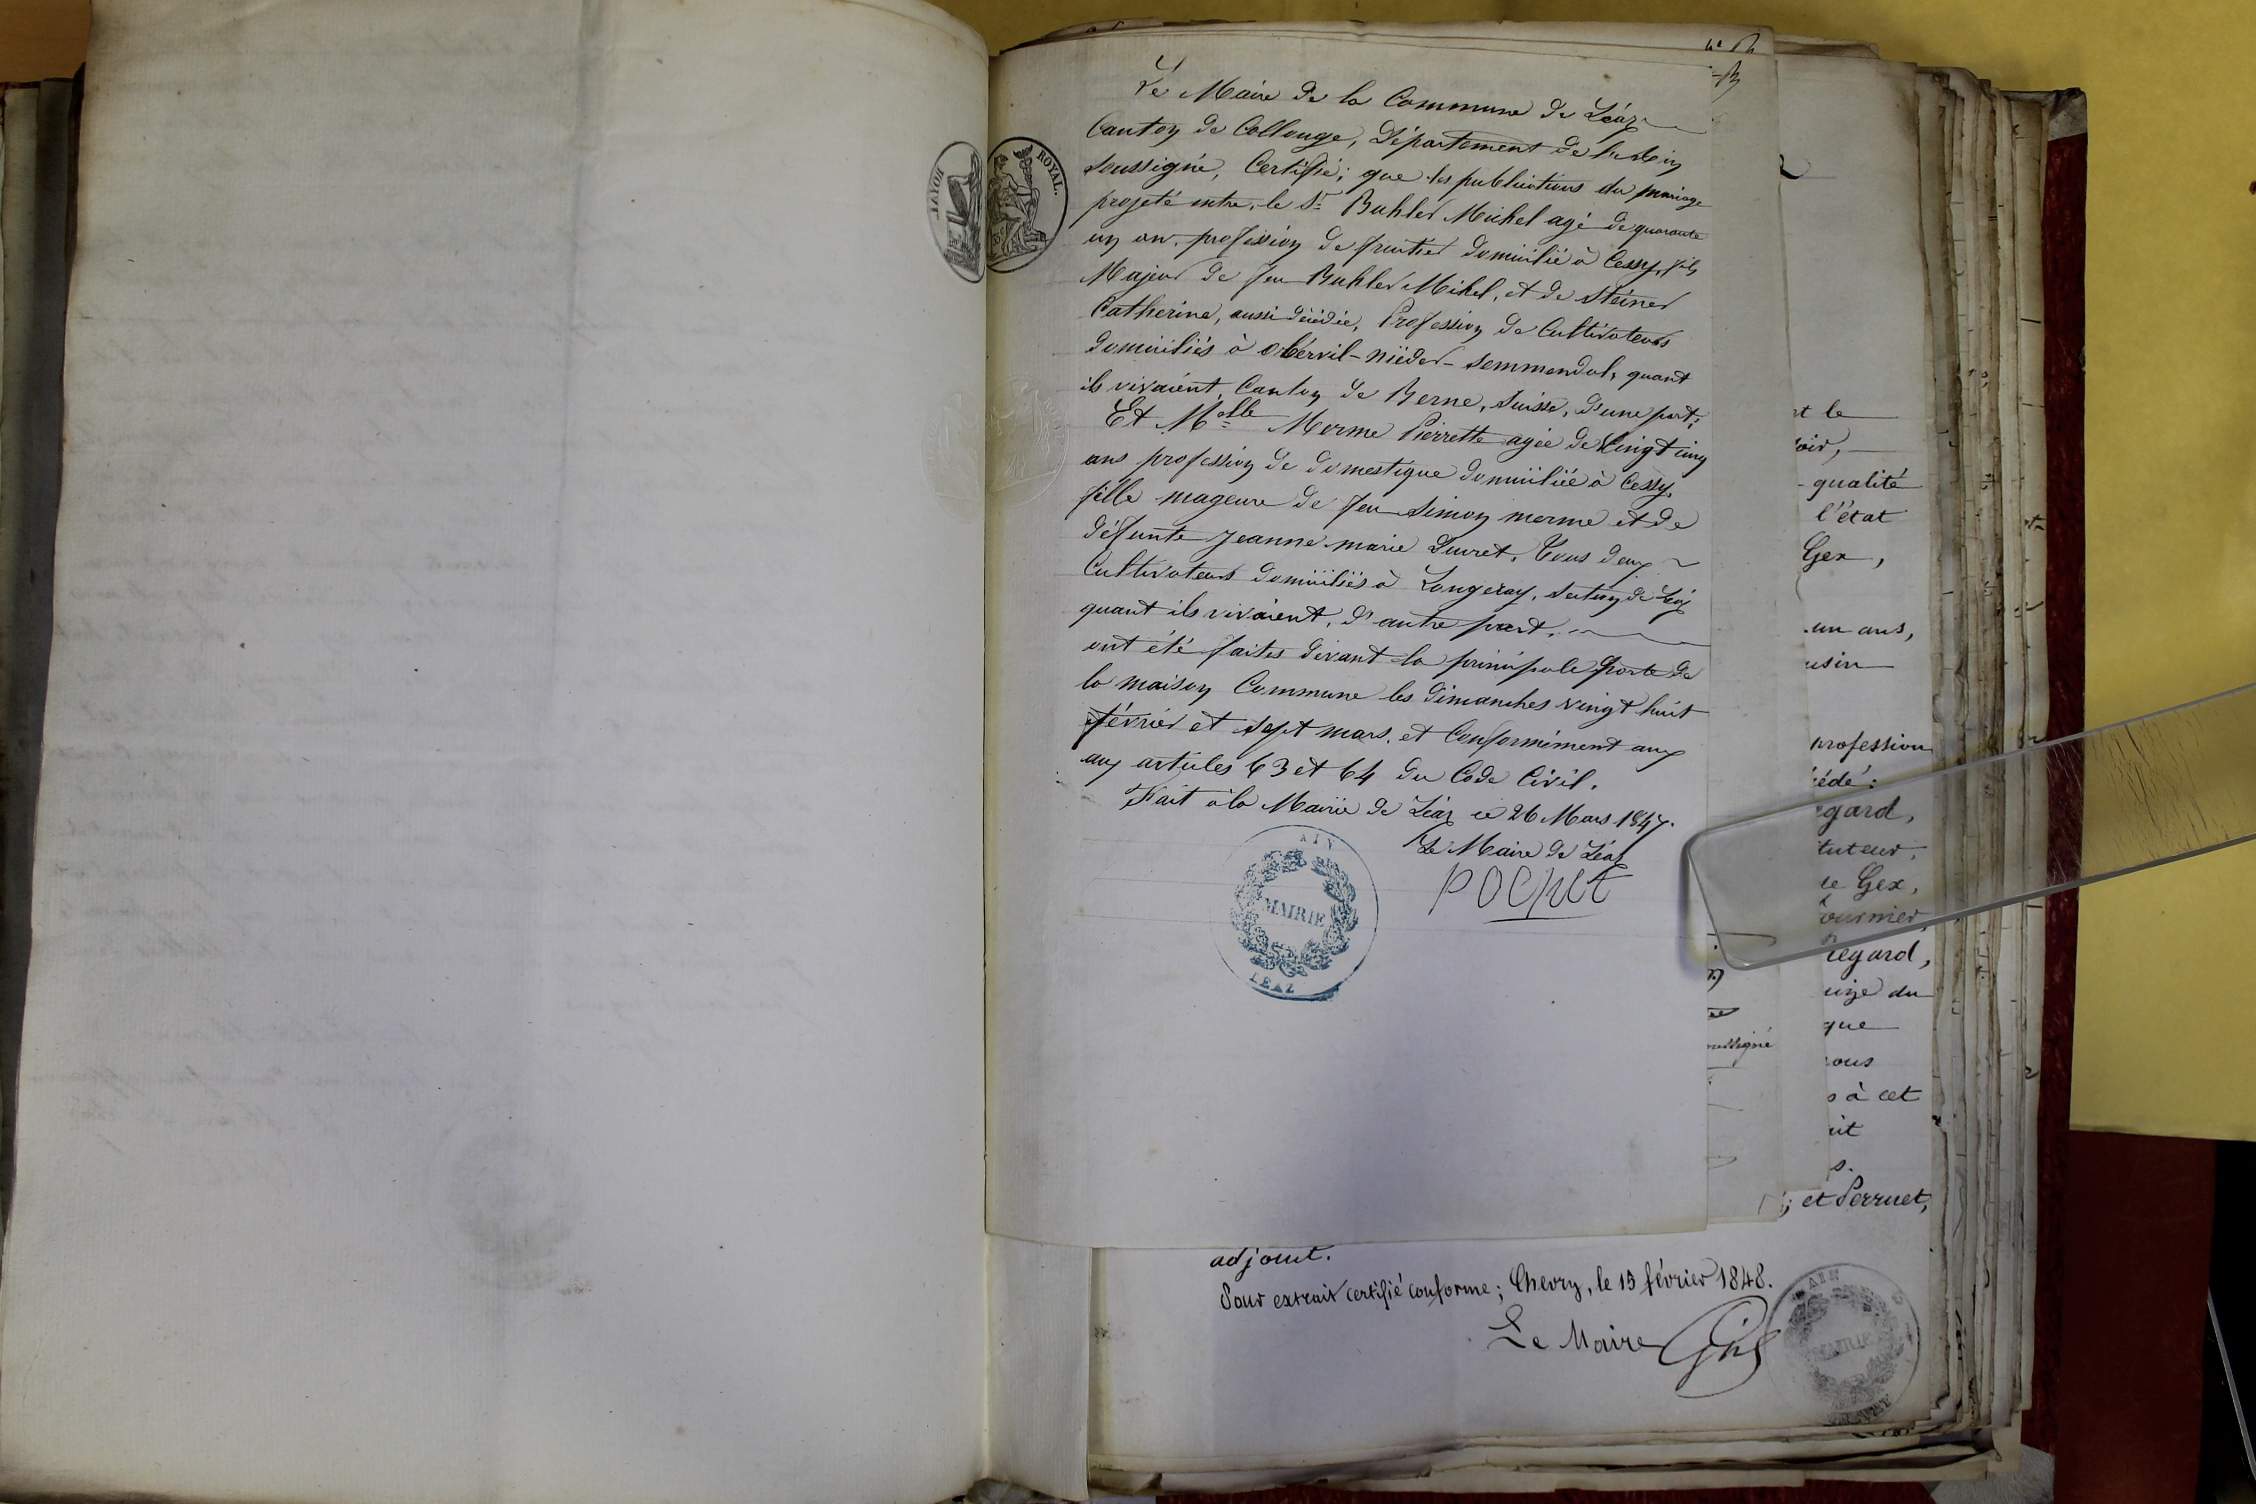 ROYAL.
ROYAL
Le Maire de la Commune de Léaz
Canton de Collonge, Département de l'Ain
soussigné, Certifie; que les publications du mariage
projeté entre, le Sr. Buhler Michel agé de quarante
un an, profession de fruitier domicilié à Cessy, fils
Majeur de feu Buhler Mikel, et de Steiner
Catherine, aussi décédée, Profession de Cultivateurs
domiciliés à Obervil-nieder-semmendal, quant
ils vivaient, Canton de Berne, Suisse, d'une part;
Et Melle Merme Pierrette agée de Vingt cinq
ans profession de domestique domiciliée à Cessy,
fille mageure de feu Simon merme et de
défunte Jeanne marie Duret, Tous deux
Cultivateurs domiciliés à Longeray, section de Léaz
quant ils vivaient, d'autre part,
ont été faites devant la principale porte de
la maison Commune les dimanches vingt huit
février et sept mars, et Conformément aux
aux articles 63 et 64 du Code Civil.
Fait à la Mairie de Léaz ce 26 Mars 1847.
Le Maire de Léaz
Pochet
AIN
MAIRIE
LEAZ
nt le
oir,
qualité
l'état
Gex,
un ans,
usin
profession
cédé:
egard,
tuteur,
de Gex,
ournier,
regard,
uize du
que
ous
s à cet
ussigné
it
s.
; et Perruet,
adjoint.
Pour extrait certifié conforme; Chevry, le 15 février 1848.
Le Maire
AIN
MAIRIE